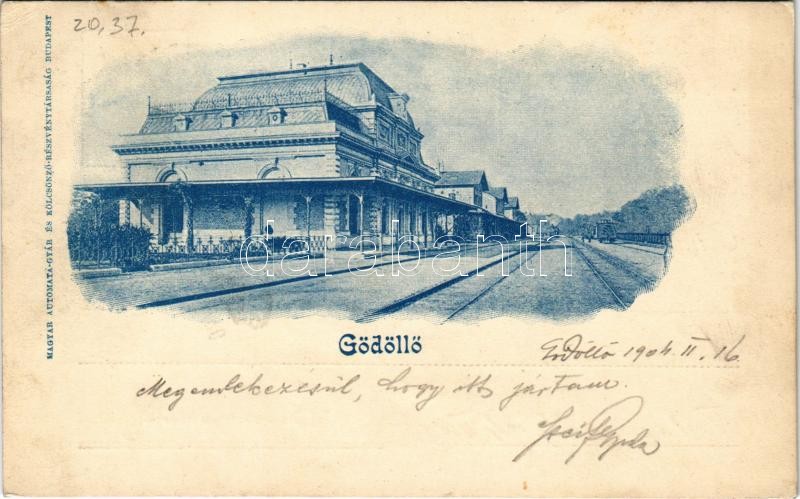 20,37.
MAGYAR AUTOMATA-GYÁR ÉS KÖLCSÖNZŐ-RÉSZVÉNYTÁRSASÁG BUDAPEST
darabanth
Gödöllő
Gödöllő 1904. II. 16
Megemlekezésül, hogy itt jártam.